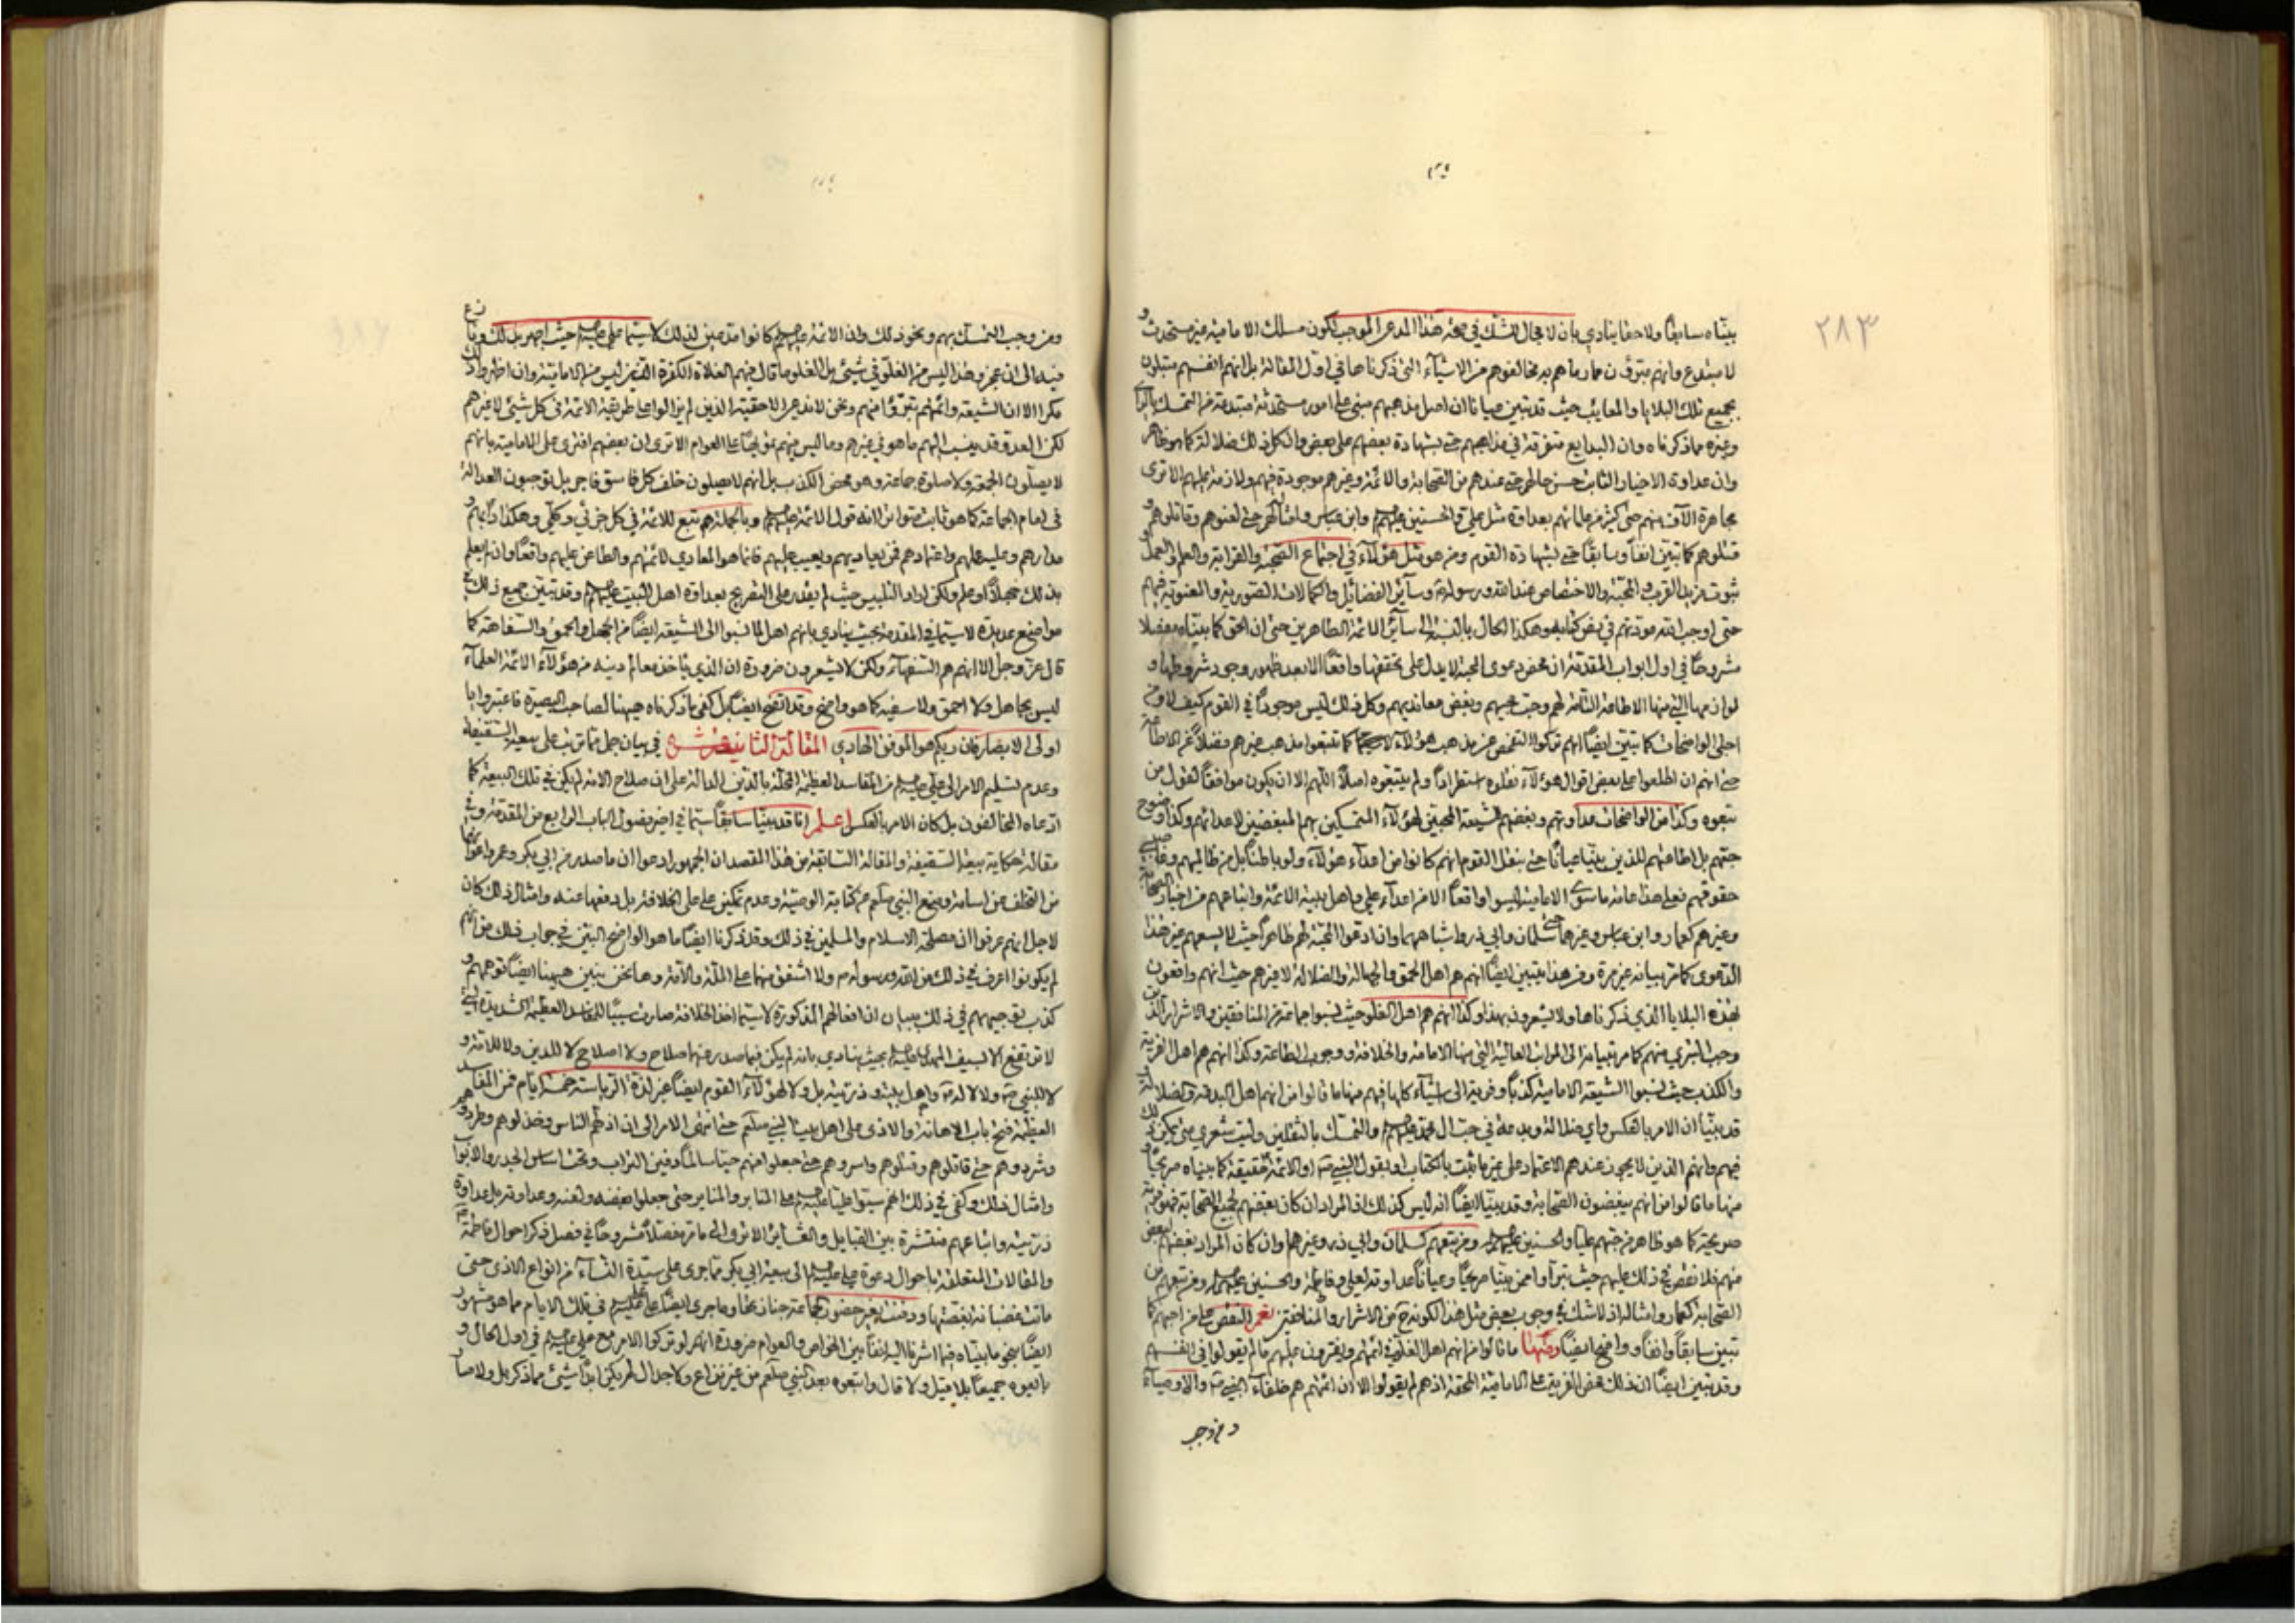 ٢٨٣
بيّناه سابقًا ولاحقًا ينادي بان لا مجال للشك في صحة هذا المدعى الموجب لكون مسلك الامامية غير مستحدث و
لا مبتدع وانهم مبرؤن مما رماهم به مخالفوهم من الاشياء التي ذكرناها في اول المقالة بل انهم انفسهم مبتلون
بجميع تلك البلايا والمعايب حيث قد تبين عيانا ان اصل مذهبهم مبني على امور مستحدثة مبتدعة من التمسك بالراي
وغيره مما ذكرناه وان البدايع متفرقة في مذاهبهم حتى بشهادة بعضهم على بعض وان كل ذلك ضلالة كما هو ظاهر
وان عداوة الاخيار الثابت حسن حالهم حتى عندهم من الصحابة والائمة وغيرهم موجودة فيهم ولازمة عليهم الا ترى
مجاهرة الآف منهم حتى كثير من علمائهم بعداوة مثل علي والحسنين عليهم وابن عباس وامثالهم حتى لعنوهم وقاتلوهم و
قتلوهم كما تبين انفًا وسابقًا حتى بشهادة القوم ومن هو مثل هؤلاء في اجتماع الصحبة والقرابة والعلم والعمل و
ثبوت مزيد القرب والمحبة والاختصاص عند الله ورسوله وسائر الفضائل والكمالات الصورية والمعنوية فيهم
حتى اوجب الله مودتهم في نص كتابه وهكذا الحال بالنسبة الى سائر الائمة الطاهرين حتى ان الحق كما بيناه مفصلا
مشروحًا في اول ابواب المقدمة ان محض دعوى المحبة لا يدل على تحققها واقعًا الا بعد ظهور وجود شروطها و
لوازمها التي منها الاطاعة التامة لهم وحب محبيهم وبغض معانديهم وكل ذلك ليس موجودًا في القوم كيف لا ومن
اجلى الواضحات كما تبين ايضًا انهم تركوا التفحص عن مذهب هؤلاء كما تتبعوا مذهب غيرهم فضلا عن الاطاعة
حتى انهم ان اطلعوا على بعض اقوال هؤلاء نقلوه استطرادًا ولم يتبعوه اصلًا اللهم الا ان يكون موافقًا لقول من
تبعوه وكذا من الواضحات عداوتهم وبغضهم للشيعة المحبين لهؤلاء المتمسكين بهم المبغضين لاعدائهم وكذا وضوح
حبهم بل اطاعتهم للذين بينا عيانًا حتى بنقل القوم انهم كانوا من اعداء هؤلاء ولو باطنًا بل من ظالميهم وغاصبي
حقوقهم فعلى هذا عامة ما سوى الامامية ليسوا واقعًا الا من اعداء علي واهل بيته الائمة واتباعهم من اخيار الصحابة
وغيرهم كعمار وابن عباس وغيرهما حتى سلمان وابي ذر واشباههما وان ادعوا المحبة لهم ظاهرًا حيث لا يسعهم غير هذا
الدعوى كما مر بيانه غير مرة ومن هذا يتبين ايضًا انهم هم اهل الحمق والجهالة والضلالة لا غيرهم حيث انهم واقعون
بهذه البلايا الذي ذكرناها ولا يشعرون بهذا وكذا انهم هم اهل الغلو حيث نسبوا جماعة من المنافقين والاشرار الذين
وجب التبري منهم كما مر بيانه الى المراتب العالية التي منها الامامة والخلافة ووجوب الطاعة وكذا انهم هم اهل الفرية
والكذب حيث نسبوا الشيعة الامامية كذبًا وفرية الى اشياء كلها فيهم منها ما قالوا من انهم اهل البدعة والضلالة
قد بينا ان الامر بالعكس واي ضلالة وبدعة في حب ال محمد عليهم والتمسك بالثقلين وليت شعري متى يمكن ذلك
فيهم وانهم الذين لا يجوز عندهم الاعتماد على غير ما ثبت بالكتاب او بقول النبي ص او الائمة حقيقة كما بيناه صريحًا و
منها ما قالوا من انهم يبغضون الصحابة وقد بينا ايضًا انه ليس كذلك اذ المراد ان كان بغضهم لجميع الصحابة فهو فرية
صريحة كما هو ظاهر من حبهم عليا والحسنين عليهم ومن تبعهم كسلمان وابي ذر وغيرهم وان كان المراد بغضهم لبعض
منهم فلا نقص في ذلك عليهم حيث تبرأوا ممن بينا صريحًا وعيانًا عداوته لعلي وفاطمة والحسنين عليهم ومن تبعهم من
الصحابة كعمار وامثاله اذ لا شك في وجوب بغض مثل هذا لكونه ح من الاشرار والمنافقين نعم النقص على من احبهم كما
تبين سابقًا وانفًا وواضحا ايضًا ومنها ما قالوا من انهم اهل الغلو في ائمتهم ويفترون عليهم ما لم يقولوا في انفسهم
وقد تبين ايضًا ان ذلك محض الفرية على الامامية المحقة اذ هم لم يقولوا الا ان ائمتهم هم خلفاء النبي ص والاوصياء
ومن وجب
ومن وجب التمسك بهم ونحو ذلك وان الائمة عليهم كانوا مدعين لذلك لا سيما علي عليه حيث اجهر بذلك ونازع
فيه الى ان عجز وهذا ليس من الغلو في شيء بل الغلو ما قال فيهم الغلاة الكفرة الذين ليس من الامامية وان اظهروا ذلك
مكرا الا ان الشيعة وائمتهم تبرؤا منهم ونحن لا ندعي الا حقية الذين لم يزالوا على طريقة الائمة في كل شيء لا غيرهم
لكن العدو قد ينسب اليهم ما هو في غيرهم وما ليس منهم تمويهًا على العوام الا ترى ان بعضهم افترى على الامامية بانهم
لا يصلون الجمعة ولا صلوة جماعة وهو محض الكذب بل انهم لا يصلون خلف كل فاسق فاجر بل يوجبون العدالة
في امام الجماعة كما هو ثابت متواترا انه قول الائمة عليهم وبالجملة هم تبع للائمة في كل جزئي وكلي وهكذا دابهم و
مدارهم وعليه عملهم واعتمادهم فمن يعاديهم ويعيب عليهم فانما هو المعادي لائمتهم والطاعن عليهم واقعًا وان لم يعلم
بذلك جهلًا او علم ولكن اراد التلبيس حيث لم يقدر على التصريح بعداوة اهل البيت عليهم وقد تبين جميع ذلك في
مواضع عديدة لا سيما في المقدمة بحيث ينادي بانهم اهل لما نسبوا الى الشيعة ايضًا من الجهل والحمق والسفاهة كما
قال عز وجل الا انهم هم السفهاء ولكن لا يشعرون ضرورة ان الذي ياخذ معالم دينه من هؤلاء الائمة العلماء
ليس بجاهل ولا احمق ولا سفيه كما هو واضح وقد اتضح ايضًا بل كفى ما ذكرناه هيهنا لصاحب البصيرة فاعتبروا يا
اولى الابصار فان ربكم هو الموفق الهادي المقالة الثانية عشر في بيان جمل مما ترتب على بيعة السقيفة
وعدم تسليم الامر الى علي عليه من المفاسد العظيمة المخلة بالدين الدالة على ان صلاح الامة لم يكن في تلك البيعة كما
ادعاه المخالفون بل كان الامر بالعكس اعلم انا قد بينا سابقًا سيما في اخير فصول الباب الرابع من المقدمة وفي
مقالة حكاية بيعة السقيفة والمقالة السابقة من هذا المقصد ان الجمهور ادعوا ان ما صدر من ابي بكر وعمر واعوانهما
من التخلف عن اسامة ومنع النبي صلعم عن كتابة الوصية وعدم تمكين علي على الخلافة بل دفعها عنه وامثال ذلك كان
لاجل انهم عرفوا ان مصلحة الاسلام والمسلمين في ذلك وقد ذكرنا ايضًا ما هو الواضح البين في جواب ذلك من انهم
لم يكونوا اعرف في ذلك من الله ورسوله ولا اشفق منهما على الملة والامة وها نحن نبين هيهنا ايضًا توهمهم و
كذب توجيههم في ذلك ببيان ان افعالهم المذكورة لا سيما اخذ الخلافة صارت سببًا للمفاسد العظيمة الشديدة التي
لا ترتفع الا بسيف المهدي عليه بحيث ينادي بانه لم يكن فيما صدر عنهما صلاح ولا اصلاح لا للدين ولا للامة و
لا للنبي ص ولا لآله واهل بيته وذريته بل ولا لهؤلاء القوم ايضًا غير لذة الرياسة خمسة ايام فمن المفاسد
العظيمة فتح باب الاهانة والاذى على اهل بيت النبي صلعم حتى انتهى الامر الى ان اذلهم الناس وخذلوهم وطردوهم
وشردوهم حتى قاتلوهم وقتلوهم واسروهم حتى جعلوا منهم حيا سالمًا دفين التراب وتحت اساس الجدر والابواب
وامثال ذلك وكفى في ذلك انهم سبوا عليا عليه على المنابر والمناير حتى جعلوا بغضه ولعنه وعداوته بل عداوة
ذريته واتباعهم منتشرة بين القبايل والعشاير الا ترى الى ما مر مفصلًا مشروحًا في فصل ذكر احوال فاطمة ع
والمقالات المتعلقة باحوال دعوة علي عليه الى بيعة ابي بكر مما جرى على سيدة النساء من انواع الاذى حتى
ماتت غضبانة بغصتها ودفنت بغير حضور الجماعة جنازتها وما جرى ايضًا على علي عليه في تلك الايام مما هو مشهور
ايضًا بنحو ما بيناه فيما اشرنا اليه انفًا بين الخواص والعوام ضرورة انهم لو تركوا الامر مع علي عليه في اول الحال و
بايعوه جميعًا بلا قيل ولا قال واتبعوه بعد النبي صلعم من غير نزاع ولا جدال لم يكن ابدًا شيء مما ذكر بل ولا صار